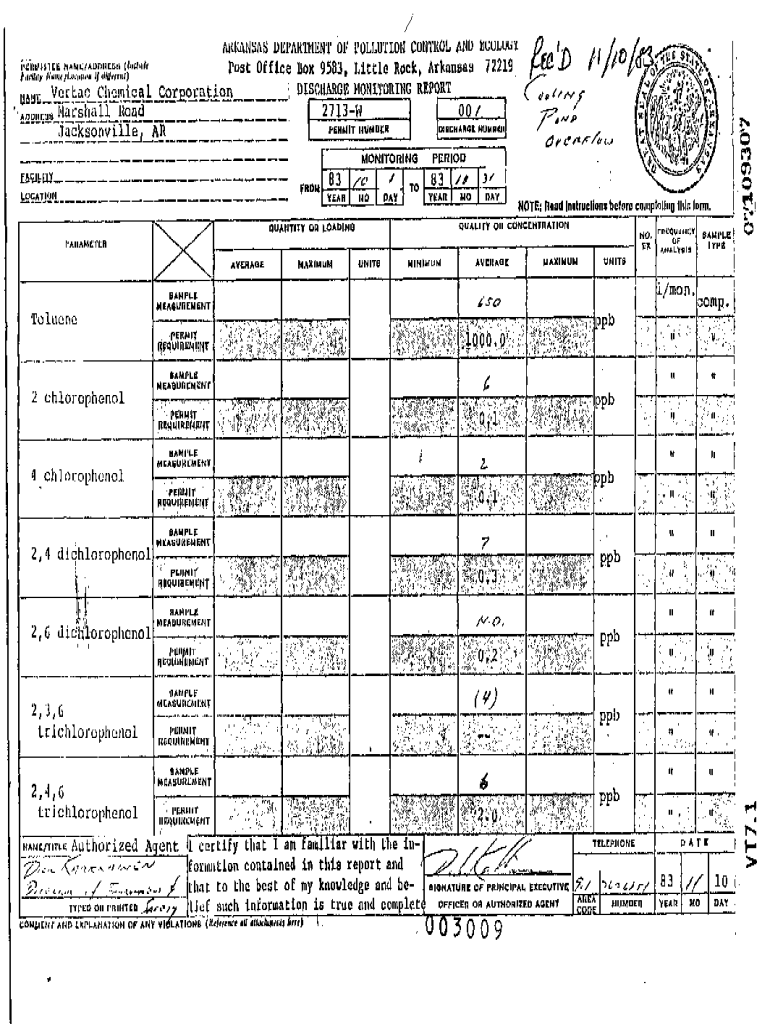 ARKANSAS DEPARTMENT OF POLLUTION CONTROL AND ECOLOGY
Post Office Box 9583, Little Rock, Arkansas 72219
DISCHARGE MONITORING REPORT
Rec'D 11/10/83
Cooling
Pond
Overflow
PERMITTEE NAME/ADDRESS (Include
Facility Name/Location if different)
NAME Vertac Chemical Corporation
ADDRESS Marshall Road
Jacksonville, AR
FACILITY
LOCATION
2713-W
PERMIT NUMBER
001
DISCHARGE NUMBER
MONITORING PERIOD
FROM 83 10 1 TO 83 10 31
YEAR MO DAY YEAR MO DAY
NOTE: Read Instructions before completing this form.
07109307
PARAMETER QUANTITY OR LOADING QUALITY OR CONCENTRATION NO. EX FREQUENCY OF ANALYSIS SAMPLE TYPE
AVERAGE MAXIMUM UNITS MINIMUM AVERAGE MAXIMUM UNITS
Toluene SAMPLE MEASUREMENT 650 ppb 1/mon. comp.
PERMIT REQUIREMENT 1000.0 " "
2 chlorophenol SAMPLE MEASUREMENT 6 ppb " "
PERMIT REQUIREMENT 0.1 " "
4 chlorophenol SAMPLE MEASUREMENT 2 ppb " "
PERMIT REQUIREMENT 0.1 " "
2,4 dichlorophenol SAMPLE MEASUREMENT 7 ppb " "
PERMIT REQUIREMENT 0.3 " "
2,6 dichlorophenol SAMPLE MEASUREMENT N.D. ppb " "
PERMIT REQUIREMENT 0.2 " "
2,3,6 trichlorophenol SAMPLE MEASUREMENT (4) ppb " "
PERMIT REQUIREMENT -- " "
2,4,6 trichlorophenol SAMPLE MEASUREMENT 6 ppb " "
PERMIT REQUIREMENT 2.0 " "
NAME/TITLE Authorized Agent
Dick Karkkainen
Director of
TYPED OR PRINTED
I certify that I am familiar with the in-
formation contained in this report and
that to the best of my knowledge and be-
lief such information is true and complete
SIGNATURE OF PRINCIPAL EXECUTIVE
OFFICER OR AUTHORIZED AGENT
TELEPHONE DATE
83 11 10
AREA CODE NUMBER YEAR MO DAY
COMMENT AND EXPLANATION OF ANY VIOLATIONS (Reference all attachments here)
003009
VT7.1